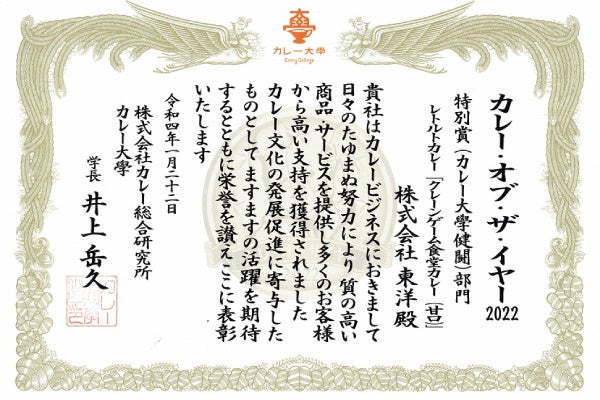 カレー大學
Curry College
カレー・オブ・ザ・イヤー2022
特別賞(カレー大學健闘)部門
レトルトカレー「クレーンゲーム食堂カレー(甘口)」
株式会社東洋殿
貴社はカレービジネスにおきまして
日々のたゆまぬ努力により質の高い
商品・サービスを提供し多くのお客様
から高い支持を獲得されました
カレー文化の発展促進に寄与した
ものとしてますますの活躍を期待
するとともに栄誉を讃えここに表彰
いたします
令和四年一月二十二日
株式会社カレー総合研究所
カレー大學
学長 井上岳久